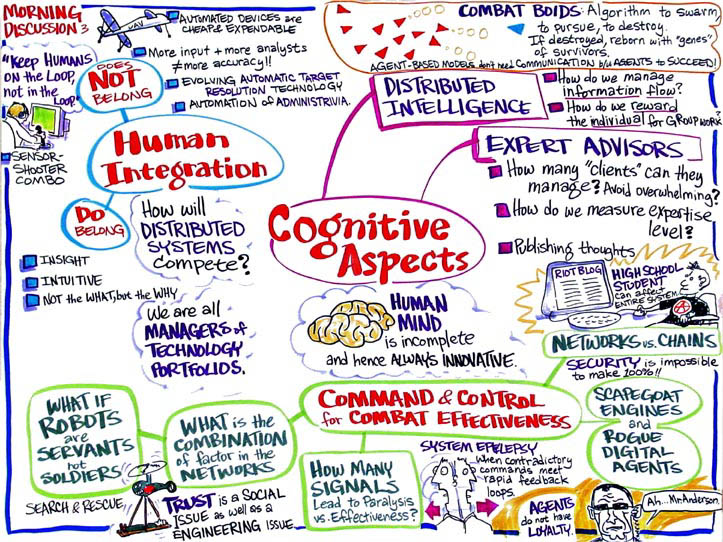 MORNING
DISCUSSION 3
AUTOMATED DEVICES are
CHEAP & EXPENDABLE
More input + more analysts
≠ more accuracy!!
EVOLVING AUTOMATIC TARGET
RESOLUTION TECHNOLOGY
AUTOMATION of ADMINISTRIVIA.
"KEEP HUMANS
ON the LOOP,
not in the
LOOP"
SENSOR-
SHOOTER
COMBO
DOES
NOT
BELONG
Human
Integration
DO
BELONG
INSIGHT
INTUITIVE
NOT the WHAT, but the WHY
COMBAT BOIDS: Algorithm to swarm,
to pursue, to destroy.
If destroyed, reborn with "genes"
of survivors.
AGENT-BASED MODELS don't need COMMUNICATION b/w AGENTS to SUCCEED!
DISTRIBUTED
INTELLIGENCE
How do we manage
information flow?
How do we reward
the individual for GROUP WORK?
EXPERT ADVISORS
How many "clients" can they
manage? Avoid overwhelming?
How do we measure expertise
level?
Publishing thoughts
RIOT BLOG
HIGH SCHOOL
STUDENT
can affect
ENTIRE SYSTEM
A
Cognitive
Aspects
How will
DISTRIBUTED
SYSTEMS
compete?
We are all
MANAGERS of
TECHNOLOGY
PORTFOLIOS.
HUMAN
MIND
is incomplete
and hence ALWAYS INNOVATIVE.
NETWORKS vs. CHAINS
SECURITY is impossible
to make 100%!!
COMMAND & CONTROL
for COMBAT EFFECTIVENESS
SCAPEGOAT
ENGINES
and
ROGUE
DIGITAL
AGENTS
WHAT IF
ROBOTS
are
SERVANTS
not
SOLDIERS"
SEARCH & RESCUE
WHAT is the
COMBINATION
of factor in the
NETWORKS
TRUST is a SOCIAL
ISSUE as well as a
ENGINEERING ISSUE
HOW MANY
SIGNALS
Lead to Paralysis
vs. Effectiveness?
SYSTEM EPILEPSY
When contradictory
commands meet
rapid feedback
loops.
AGENTS
do not have
LOYALTY.
Ah... Mr. Anderson.